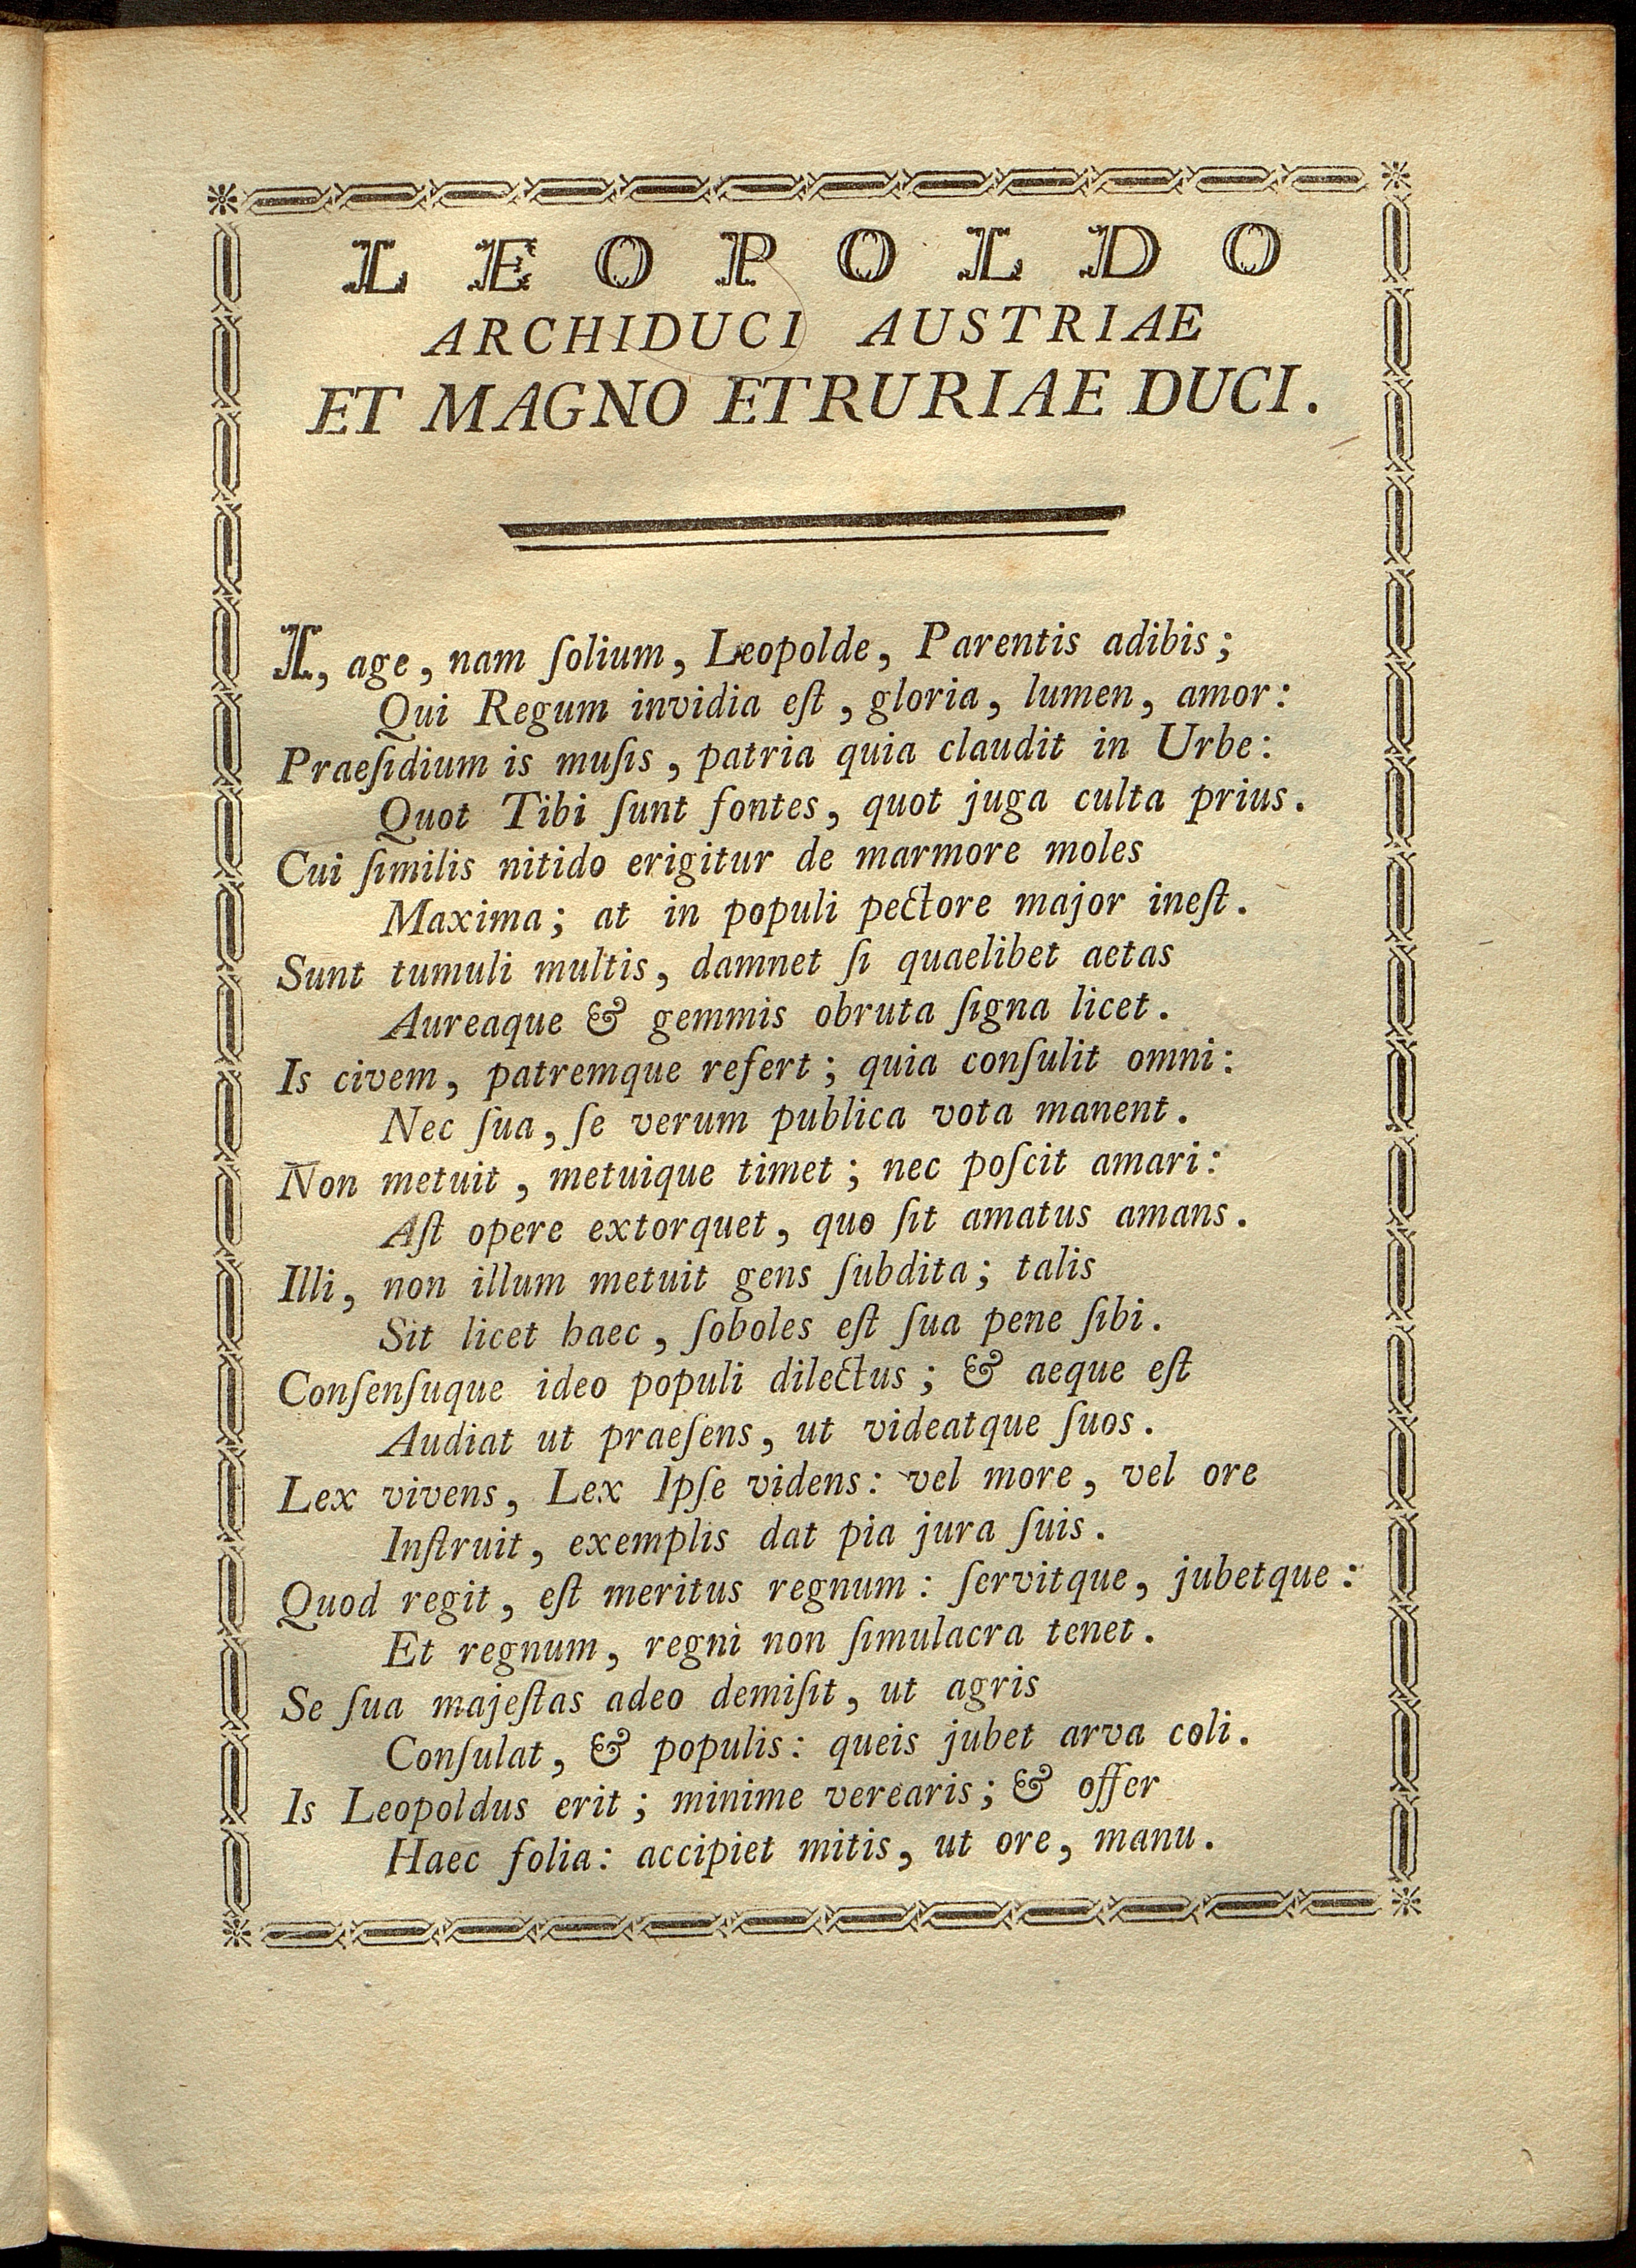 LEOPOLDO
ARCHIDUCI AUSTRIAE
ET MAGNO ETRURIAE DUCI.
I, age, nam ſolium, Leopolde, Parentis adibis;
Qui Regum invidia eſt, gloria, lumen, amor:
Praeſidium is muſis, patria quia claudit in Urbe:
Quot Tibi ſunt fontes, quot juga culta prius.
Cui ſimilis nitido erigitur de marmore moles
Maxima; at in populi pectore major ineſt.
Sunt tumuli multis, damnet ſi quaelibet aetas
Aureaque & gemmis obruta ſigna licet.
Is civem, patremque refert; quia conſulit omni:
Nec ſua, ſe verum publica vota manent.
Non metuit, metuique timet; nec poſcit amari:
Aſt opere extorquet, quo ſit amatus amans.
Illi, non illum metuit gens ſubdita; talis
Sit licet haec, ſoboles eſt ſua pene ſibi.
Conſenſuque ideo populi dilectus; & aeque eſt
Audiat ut praeſens, ut videatque ſuos.
Lex vivens, Lex Ipſe videns: vel more, vel ore
Inſtruit, exemplis dat pia jura ſuis.
Quod regit, eſt meritus regnum: ſervitque, jubetque:
Et regnum, regni non ſimulacra tenet.
Se ſua majeſtas adeo demiſit, ut agris
Conſulat, & populis: queis jubet arva coli.
Is Leopoldus erit; minime verearis; & offer
Haec folia: accipiet mitis, ut ore, manu.